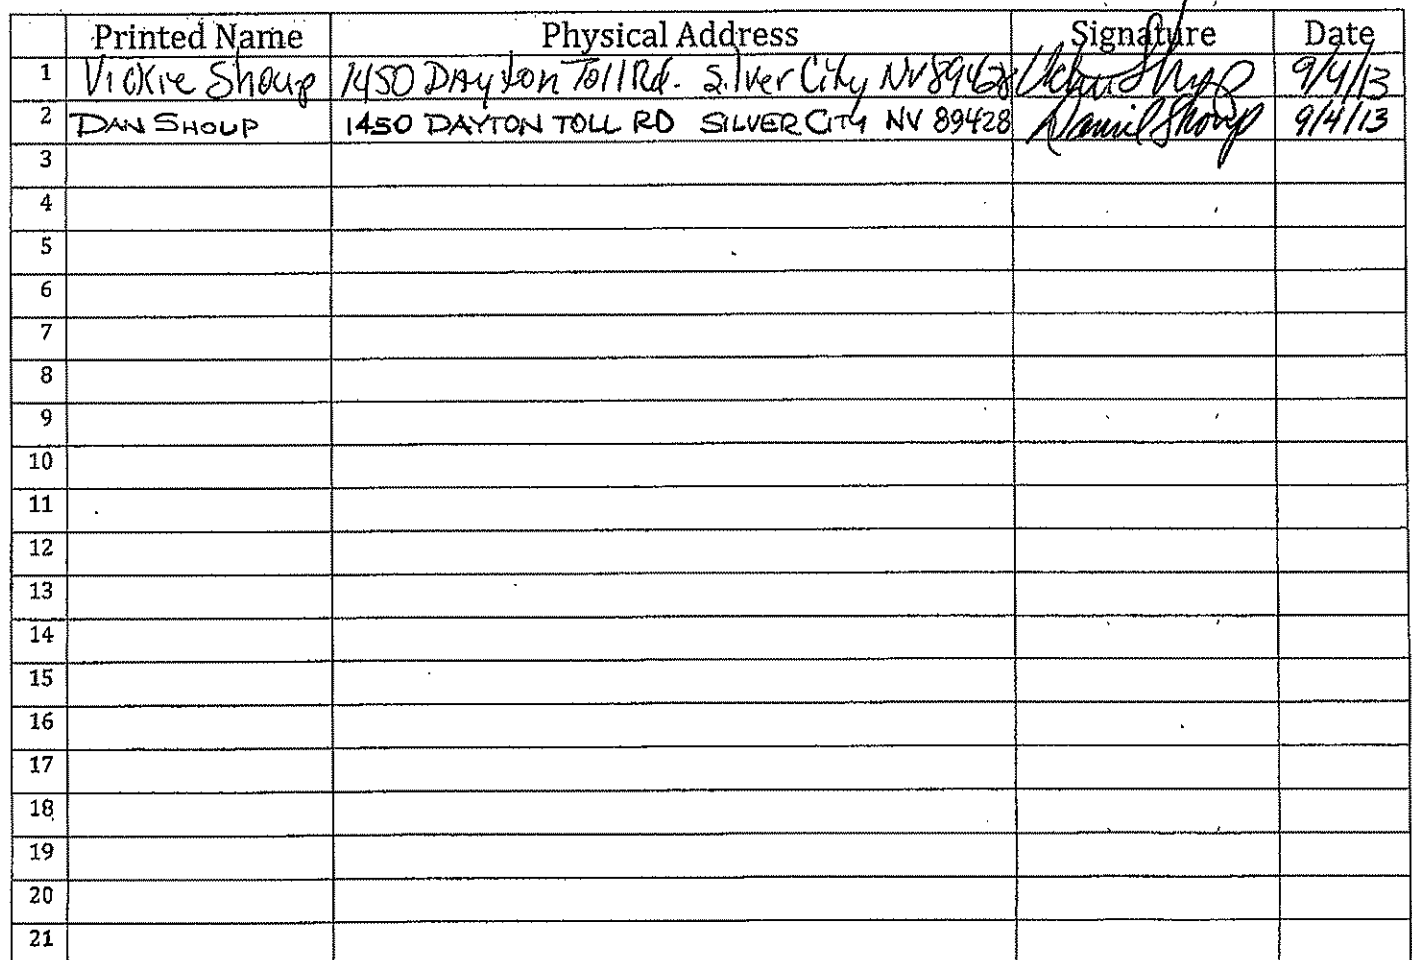 Printed Name Physical Address Signature Date
1 Vickie Shoup 1450 DAyton Toll Rd. Silver City NV 89428 Vickie Shoup 9/4/13
2 DAN SHOUP 1450 DAYTON TOLL RD SILVER CITY NV 89428 Daniel Shoup 9/4/13
3
4
5
6
7
8
9
10
11
12
13
14
15
16
17
18
19
20
21